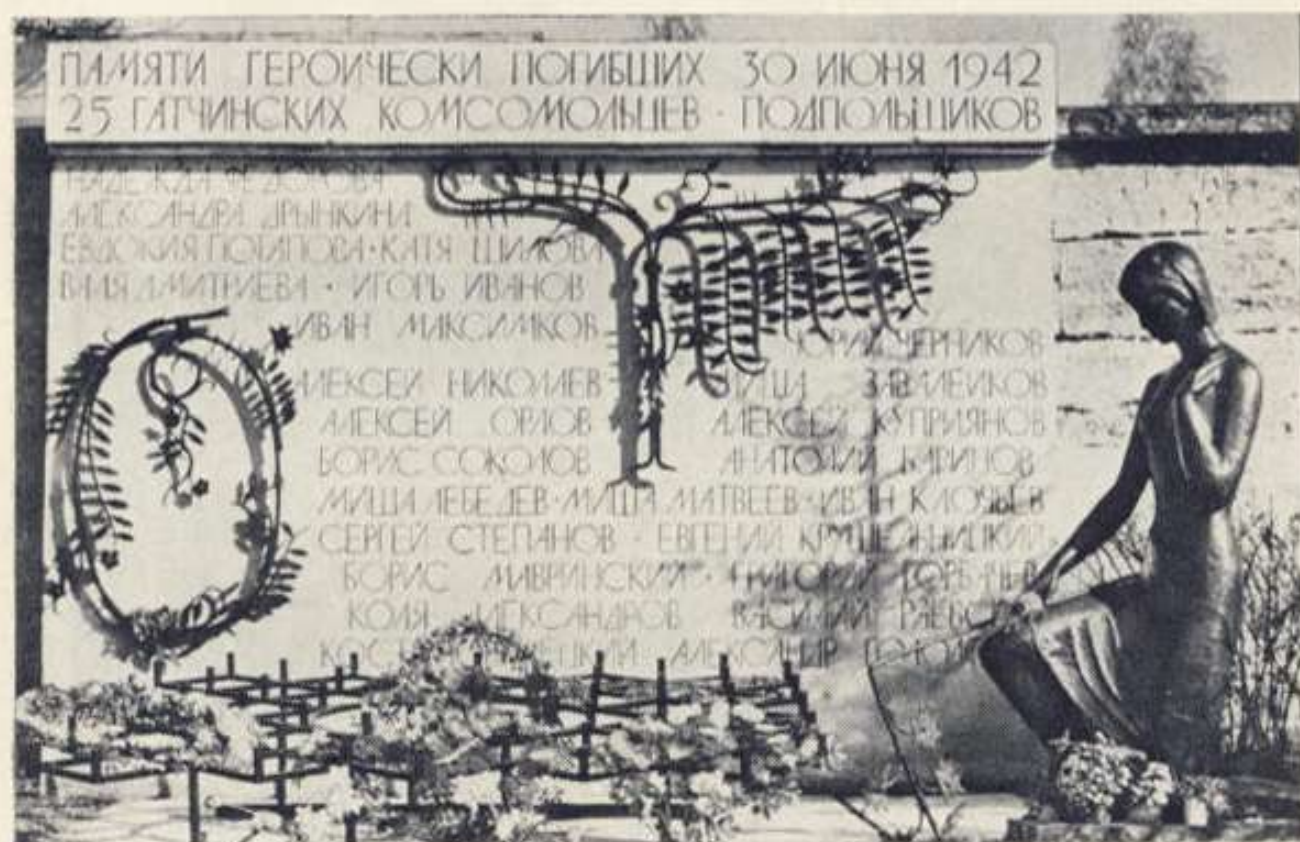 ПАМЯТИ ГЕРОИЧЕСКИ ПОГИБШИХ 30 ИЮНЯ 1942
25 ГАТЧИНСКИХ КОМСОМОЛЬЦЕВ · ПОДПОЛЬЩИКОВ
НАДЕЖДА ФЕДОРОВА
АЛЕКСАНДРА ДРЫНКИНА
ЕВДОКИЯ ПОТАПОВА · КАТЯ ШИЛОВА
ВАЛЯ ДМИТРИЕВА · ИГОРЬ ИВАНОВ
ИВАН МАКСИМКОВ
ЮРИЙ ЧЕРНИКОВ
АЛЕКСЕЙ НИКОЛАЕВ МИША ЗАВАЛЕЙКОВ
АЛЕКСЕЙ ОРЛОВ АЛЕКСЕЙ КУПРИЯНОВ
БОРИС СОКОЛОВ АНАТОЛИЙ БАРИНОВ
МИША ЛЕБЕДЕВ · МИША МАТВЕЕВ · ИВАН КЛОЧЬЕВ
СЕРГЕЙ СТЕПАНОВ · ЕВГЕНИЙ КРУШЕЛЬНИЦКИЙ
БОРИС МАВРИНСКИЙ · ГРИГОРИЙ ГОРБАЧЕВ
КОЛЯ АЛЕКСАНДРОВ ВАСИЛИЙ РАЕВСКИЙ
АЛЕКСАНДР